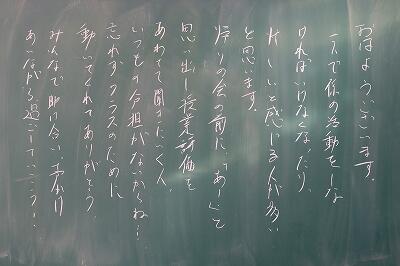 おはようございます。
一人で係の活動をしな
ければいけなくなったり、
忙しいと感じる人が多い
と思います。
帰りの会の前に、「あーって
思い出し授業評価を
あわてて聞きにいく人、
いつもの分担がないからね…
忘れずクラスのために
動いてくれてありがとう。
みんなで助け合い、声かけ
あいながら過ごしていこう!